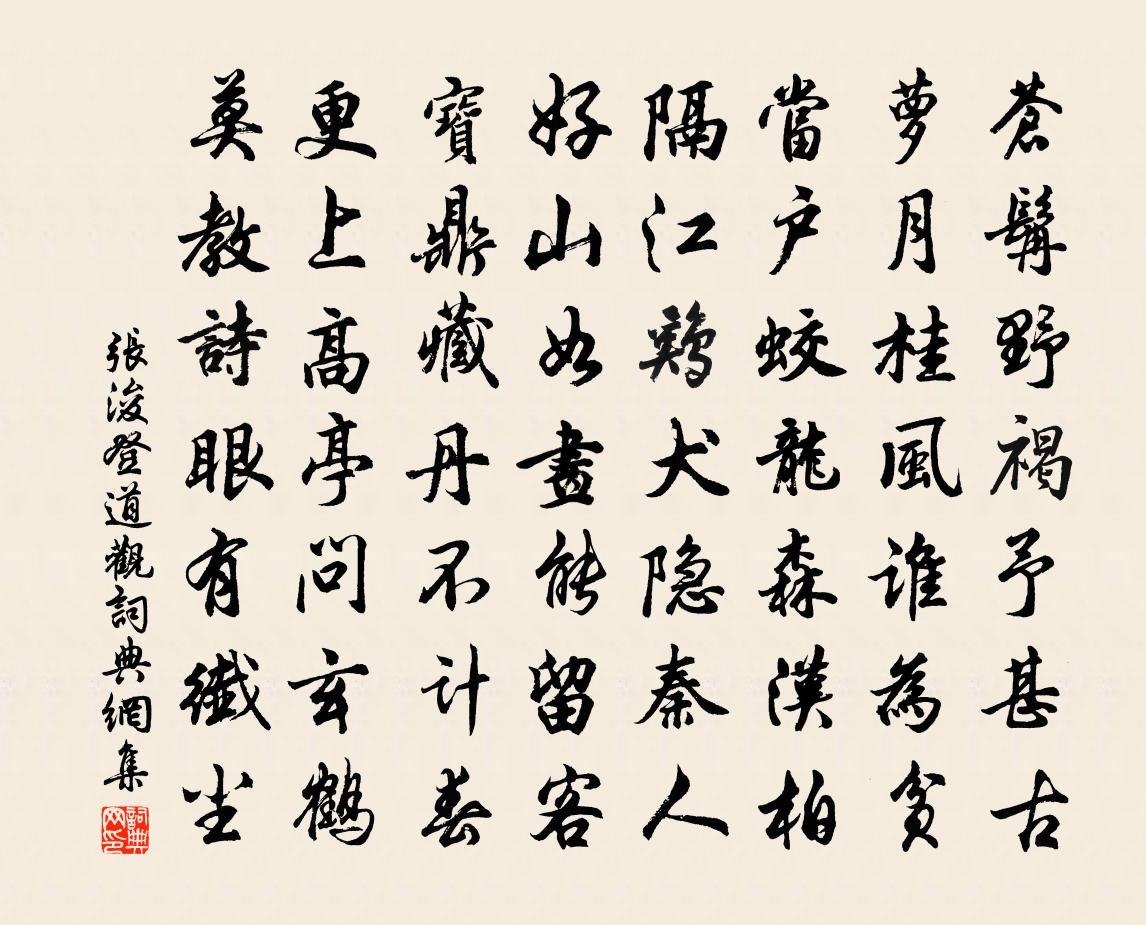 蒼髯野褐予甚古
萝月桂風谁為貧
當户蛟龍森漢柏
隔江鷄犬隐秦人
好山如畫能留客
寶鼎藏丹不计春
更上高亭問玄鶴
莫教詩眼有纖尘
張浚登道觀詞典網集
詞典網印